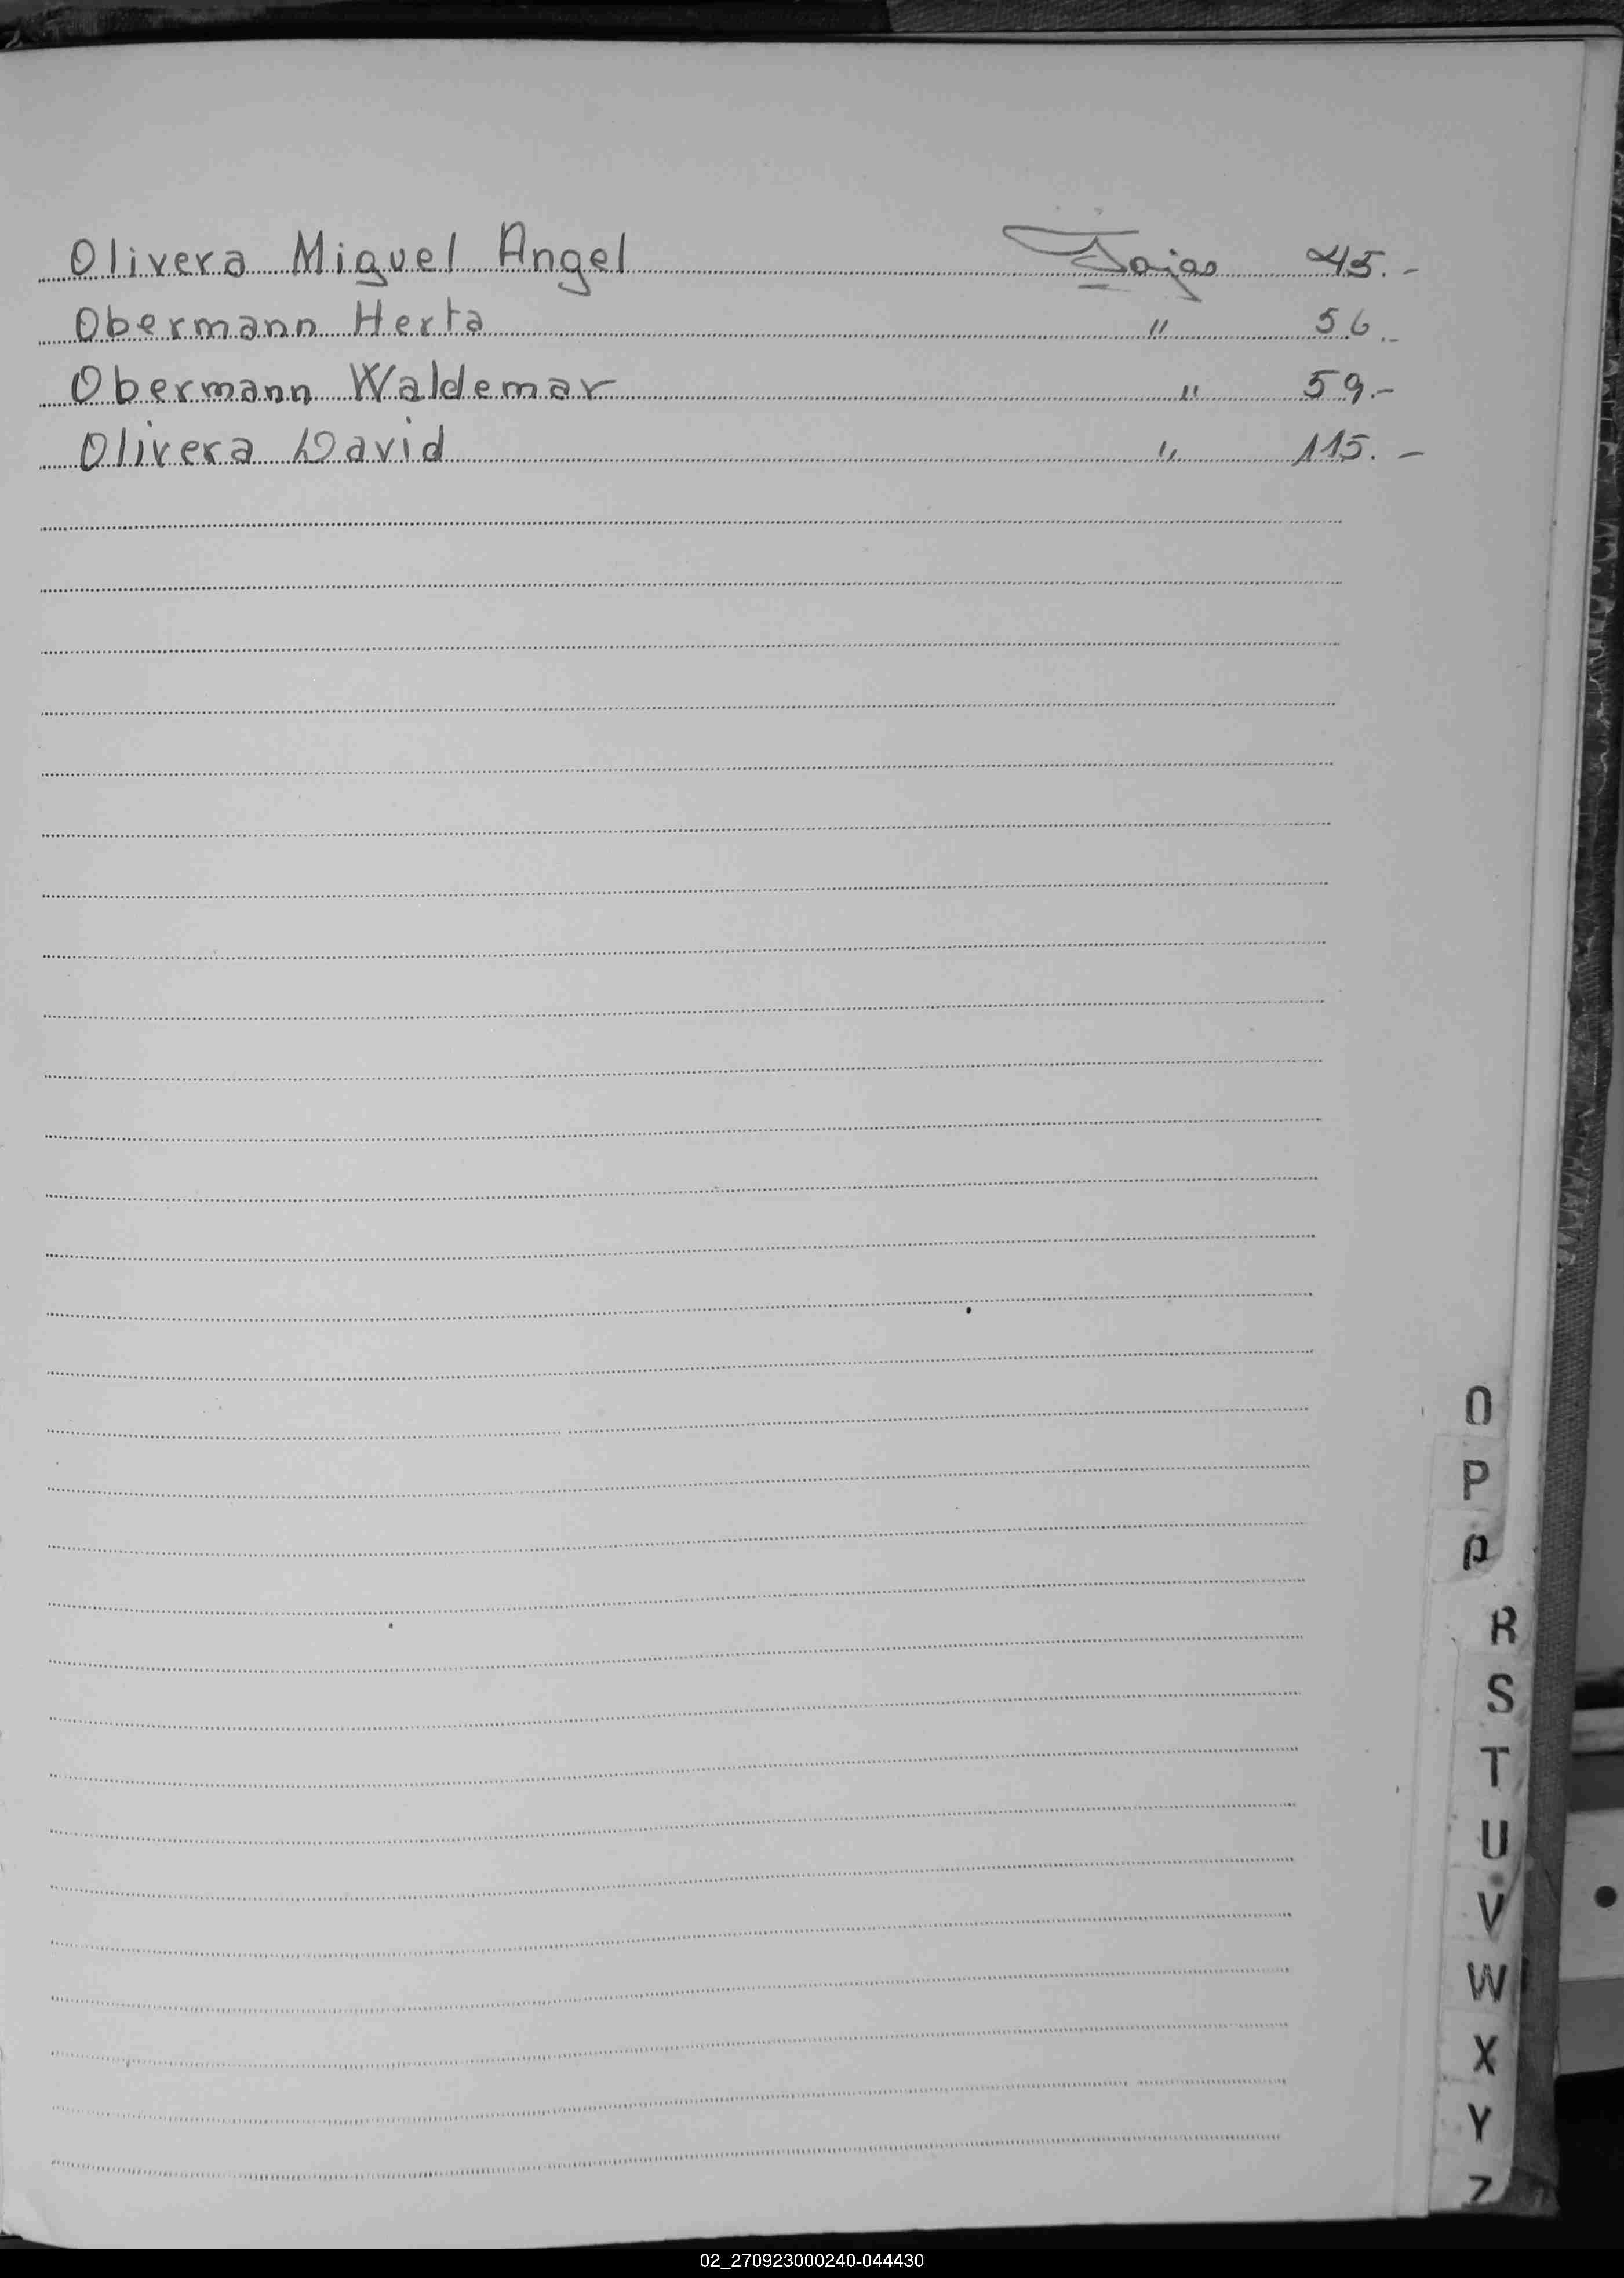 Olivera Miguel Angel Fojas 45.-
Obermann Herta " 56.-
Obermann Waldemar " 59.-
Olivera David " 115.-
O
P
Q
R
S
T
U
V
W
X
Y
Z
02_270923000240-044430